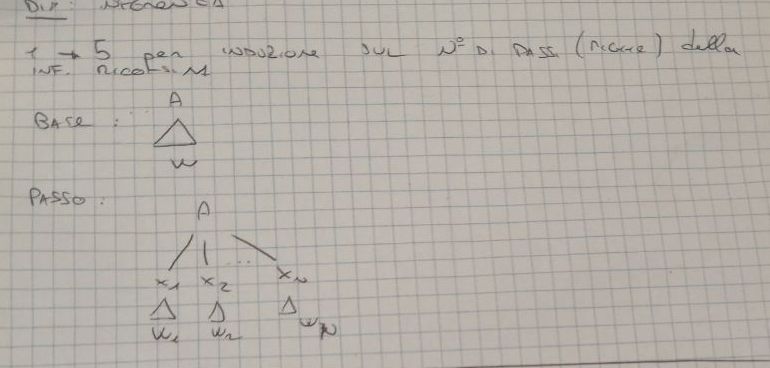 DIM:
1 → 5 per INDUZIONE SUL Nº DI PASSI (RIGHE) della
INF. RICORSIVA
BASE: A
W
PASSO:
A
X1 X2 .. XN
W1 W2 WN